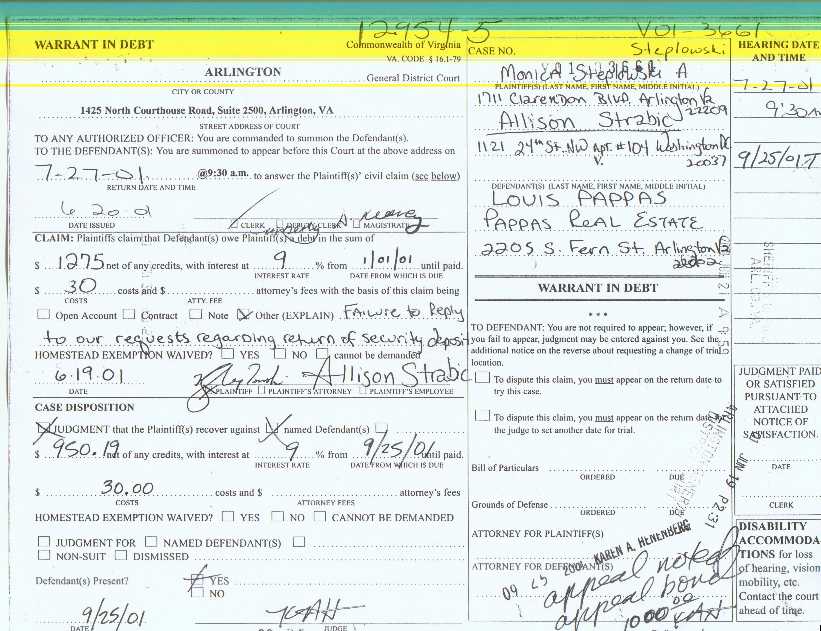 12954-5
V01-3661
WARRANT IN DEBT
Commonwealth of Virginia
VA. CODE § 16.1-79
ARLINGTON
General District Court
CITY OR COUNTY
1425 North Courthouse Road, Suite 2500, Arlington, VA
STREET ADDRESS OF COURT
TO ANY AUTHORIZED OFFICER: You are commanded to summon the Defendant(s).
TO THE DEFENDANT(S): You are summoned to appear before this Court at the above address on
7-27-01 @9:30 a.m. to answer the Plaintiff(s)' civil claim (see below)
RETURN DATE AND TIME
6 20 01
DATE ISSUED
CLERK DEPUTY CLERK MAGISTRATE
CLAIM: Plaintiffs claim that Defendant(s) owe Plaintiff(s) a debt in the sum of
$ 1275 net of any credits, with interest at 9 % from 1/01/01 until paid.
INTEREST RATE DATE FROM WHICH IS DUE
$ 30 costs and $ attorney's fees with the basis of this claim being
COSTS ATTY. FEE
Open Account Contract Note Other (EXPLAIN) Failure to Reply
to our requests regarding return of security deposit
HOMESTEAD EXEMPTION WAIVED? YES NO cannot be demanded
6.19.01 Allison Strabic
DATE PLAINTIFF PLAINTIFF'S ATTORNEY PLAINTIFF'S EMPLOYEE
CASE DISPOSITION
JUDGMENT that the Plaintiff(s) recover against named Defendant(s)
$ 950.19 net of any credits, with interest at 9 % from 9/25/01 until paid.
INTEREST RATE DATE FROM WHICH IS DUE
$ 30.00 costs and $ attorney's fees
COSTS ATTORNEY FEES
HOMESTEAD EXEMPTION WAIVED? YES NO CANNOT BE DEMANDED
JUDGMENT FOR NAMED DEFENDANT(S)
NON-SUIT DISMISSED
Defendant(s) Present? YES
NO
9/25/01 KAH
DATE JUDGE
CASE NO. Steplowski
Monica Steplowski A
PLAINTIFF(S) (LAST NAME, FIRST NAME, MIDDLE INITIAL)
1711 Clarendon Blvd. Arlington Va
22209
Allison Strabic
1121 24th St. NW Apt. #104 Washington DC
v. 20037
DEFENDANT(S) (LAST NAME, FIRST NAME, MIDDLE INITIAL)
Louis Pappas
Pappas Real Estate
2205 S. Fern St. Arlington Va
22202
WARRANT IN DEBT
* * *
TO DEFENDANT: You are not required to appear; however, if
you fail to appear, judgment may be entered against you. See the
additional notice on the reverse about requesting a change of trial
location.
To dispute this claim, you must appear on the return date to
try this case.
To dispute this claim, you must appear on the return date for
the judge to set another date for trial.
Bill of Particulars
ORDERED DUE
Grounds of Defense
ORDERED DUE
ATTORNEY FOR PLAINTIFF(S)
KAREN A. HENENBERG
ATTORNEY FOR DEFENDANT(S)
09 25 2001
appeal noted
appeal bond
1000.00 KAH
JUN 19 P2:31
HEARING DATE
AND TIME
7-27-01
9:30 AM
9/25/01 T
JUDGMENT PAID
OR SATISFIED
PURSUANT TO
ATTACHED
NOTICE OF
SATISFACTION.
DATE
CLERK
DISABILITY
ACCOMMODA
TIONS for loss
of hearing, vision
mobility, etc.
Contact the court
ahead of time.